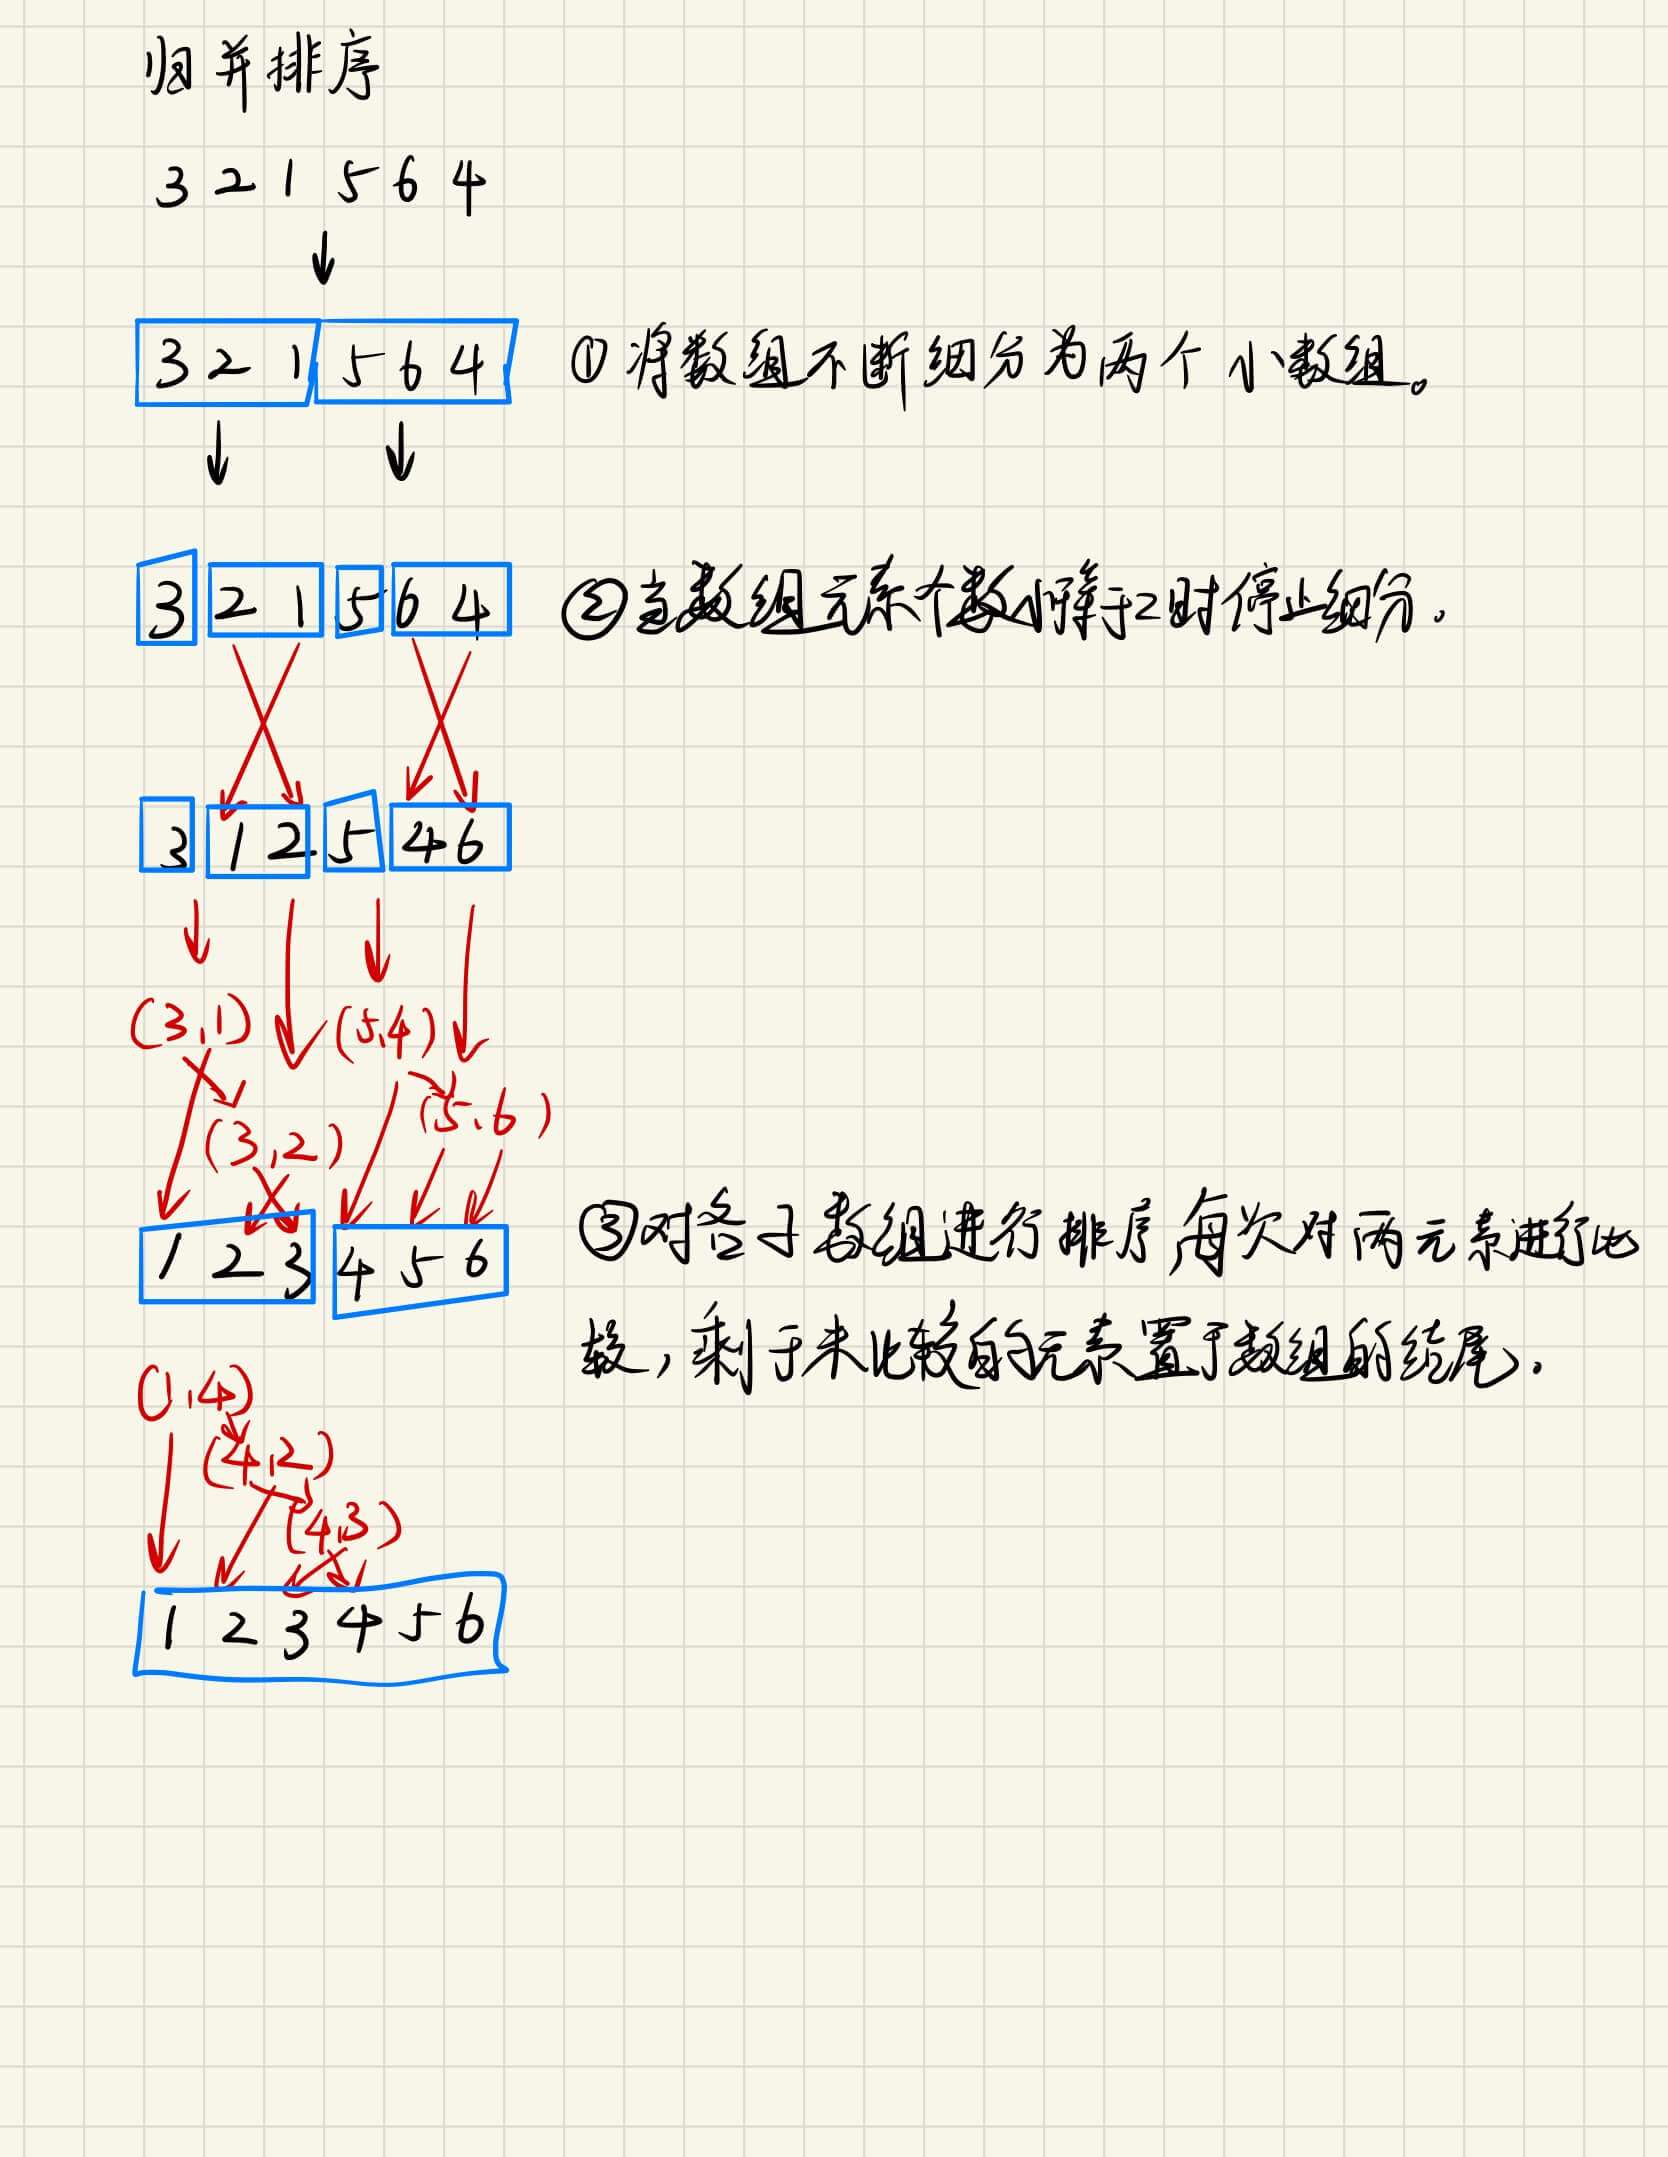 归并排序
3 2 1 5 6 4
3 2 1 5 6 4 ①将数组不断细分为两个小数组。
3 2 1 5 6 4 ②当数组元素个数小于等于2时停止细分.
3 1 2 5 4 6
(3,1) (5,4)
(5,6)
(3,2)
1 2 3 4 5 6 ③对各子数组进行排序每次对两元素进行比
较,剩于未比较的元素置于数组的结尾.
(1,4)
(4,2)
(4,3)
1 2 3 4 5 6